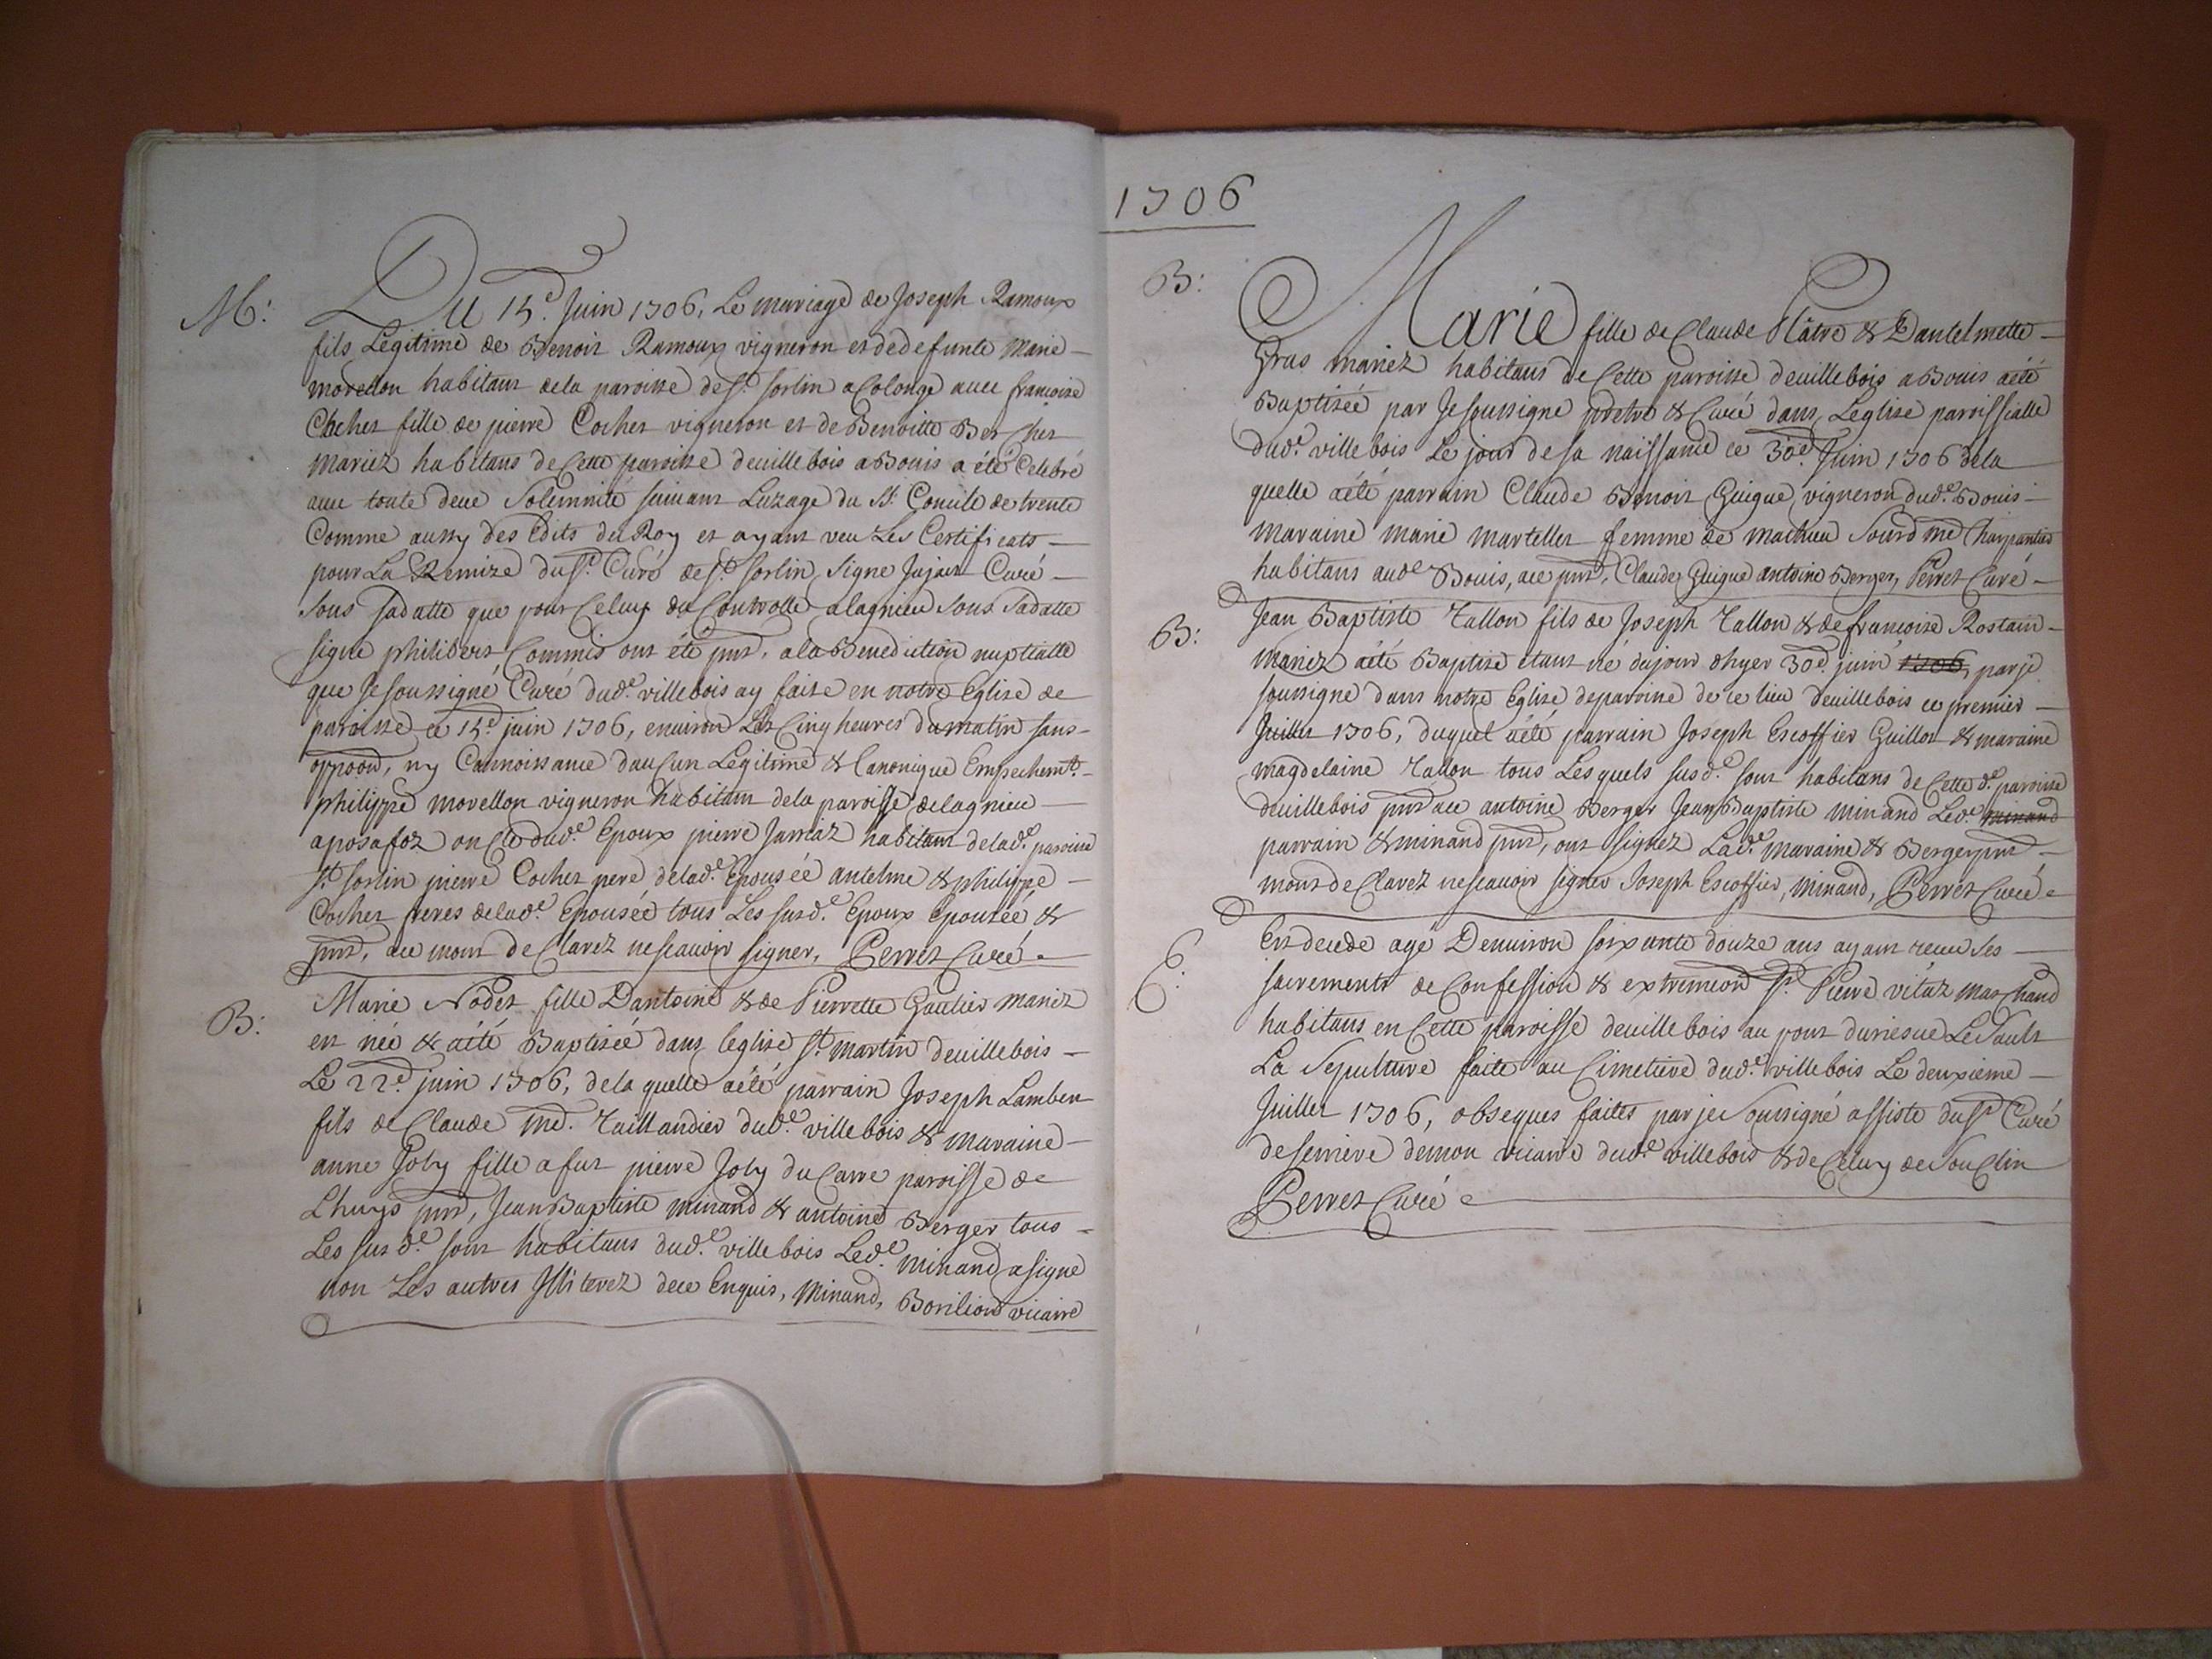 1706
M:
Du 15e. Juin 1706, Le mariage de Joseph Ramoux
fils Legitime de Benoit Ramoux vigneron et de defunte Marie
morellon habitant dela paroisse de St. sorlin a Colonge avec françoise
Cochet fille de pierre Cochet vigneron et de Benoitte Berchet
Mariez habitans de Cette paroisse devillebois a Bouis a été Celebré
avec toute deue Solemnité suivant Luzage du St. Concile de trente
Comme aussy des Edits du Roy et ayant veu Les Certificats
pour La Remize du sr. Curé de St. sorlin, Signe Jujat Curé
sous sa datte que pour Celuy du Controlle alagnieu sous sadatte
signe philibert, Commis ont été pnts. ala Benediction nuptialle
que Je soussigné Curé dude. villebois ay faite en notre Eglise de
paroisse ce 15e. juin 1706, environ Les Cinq heures du matin sans
oppoon, ny Connoissance daucun Legitime & Canonique Empechemt.
philippe morellon vigneron habitant dela paroisse delagnieu
aposafoz oncle dude. Epoux pierre Jarnaz habitant delade. paroisse
St. sorlin pierre Cochet pere delade. Epousée antelme & philippe
Cochet freres delade. Epousée tous Les susde. Epoux Epousée &
pnts, ace mont deClarez nescavoir signer, Perret Curé
B:
Marie Nodet fille Dantoine & de Pierrette Gautier Mariez
est née & aété Baptisée dans leglise St. Martin devillebois
Le 22e. juin 1706, de la quelle aété parrain Joseph Lambert
fils de Claude me. Taillandier dude. villebois & maraine
anne Joly fille afut pierre Joly du Carre paroisse de
Lhuys pnts, Jean Baptiste Minand & antoine Berger tous
Les susde. sont habitans dude. villebois Lede. Minand a signe
non Les autres Illiterez dece Enquis, Minand, Borilion vicaire
B:
Marie fille de Claude Plâtre & Dantelmette
Gras mariez habitans de Cette paroisse devillebois a Bouis aété
Baptisée par Je soussigne pretre & Curé dans Leglise paroissialle
dude. villebois Le jour de sa naissance ce 30e. Juin 1706 de la
quelle aété parrain Claude Benoit Guigue, vigneron dude. Bouis
maraine marie martellet femme de mathieu Sourd me Charpantier
habitans aude Bouis, ace pnts, Claude Guigue antoine Berger, Perret Curé
B:
Jean Baptiste Tallon fils de Joseph Tallon & de françoise Rostain
Mariez aété Baptisé étant né dujour dhyer 30e. juin 1706, par je
soussigne dans notre Eglise deparoisse de ce lieu devillebois ce premier
Juillet 1706, duquel aété parrain Joseph Escoffier Guillot & maraine
magdelaine Tallon tous Les quels susde. sont habitans de Cette de. paroisse
devillebois pnts ace antoine Berger Jean Baptiste minand Lede. minand
parrain & minand pnts, ont signez Lade. maraine & Berger pnts
mont deClarez nescavoir signer Joseph Escoffier, Minand, Perret Curé
E:
Est decede agé Denviron soixante douze ans ayant receu Ses
sacrements de Confession & extremeon Sr. Pierre vitaz marchand
habitans en Cette paroisse devillebois au pont duriesue Le Sault
La Sepulture faite au Cimetiere dude. villebois Le deuxieme
Juillet 1706, obseques faites par je Soussigné assisté du sr Curé
de serriere demon vicaire dude. villebois & de Celuy de Souclin
Perret Curé